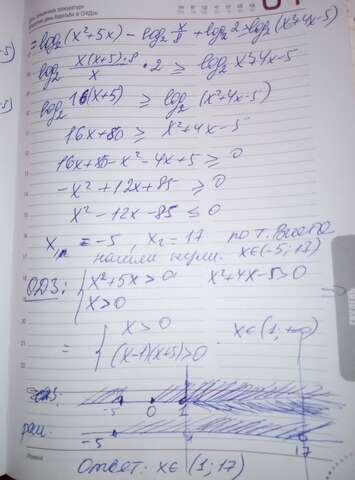 = log₂(x²+5x) - log₂ x/8 + log₂2 ≥ log₂(x²+4x-5)
log₂ x(x+5)·8/x · 2 ≥ log₂ x²+4x-5
log₂ 16(x+5) ≥ log₂ (x²+4x-5)
16x+80 ≥ x²+4x-5
16x+80-x²-4x+5 ≥ 0
-x²+12x+85 ≥ 0
x²-12x-85 ≤ 0
x₁ = -5, x₂ = 17 по т. Виета
нашли нули. x∈(-5; 17)
ОДЗ: { x²+5x > 0 x²+4x-5>0
x>0
= { x > 0 x∈(1, +∞)
(x-1)(x+5)>0
-5 0 1
-5 17
Ответ: x∈ (1; 17)